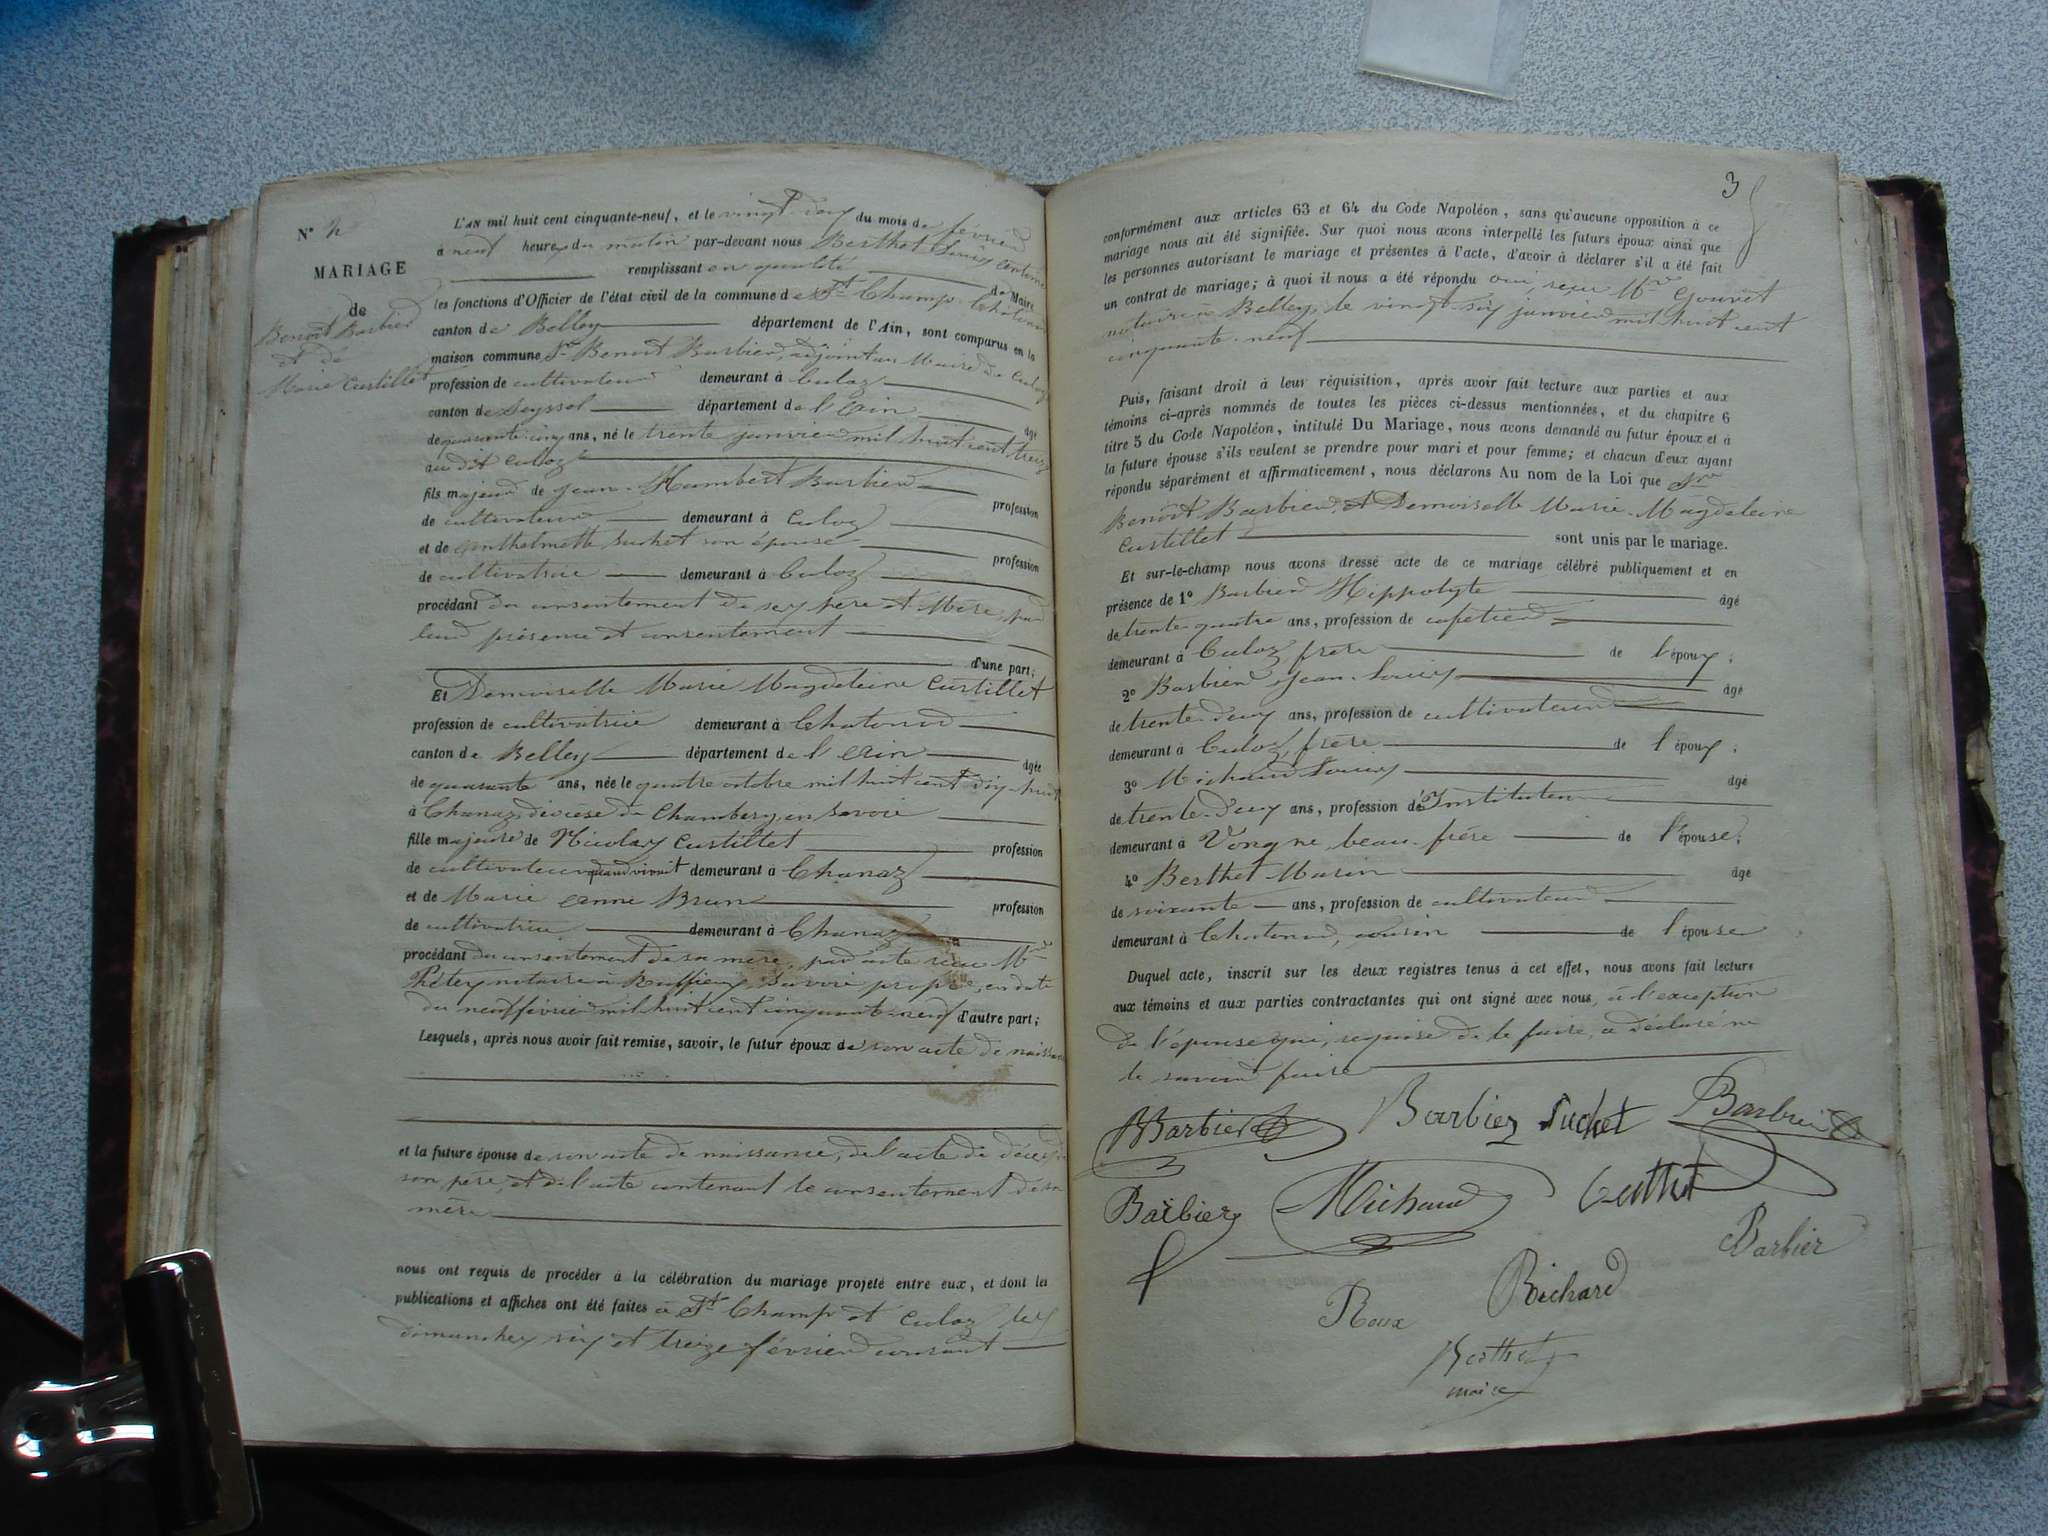 N° 2
MARIAGE
de
Benoit Barbier
et de
Marie Custillet
L'AN mil huit cent cinquante-neuf, et le vingt-deux du mois de février
à neuf heures du matin par-devant nous Berthet Louis Antoine
remplissant en qualité de Maire
les fonctions d'Officier de l'état civil de la commune de St Champ-Chatonod
canton de Belley département de l'Ain, sont comparus en la
maison commune Sr Benoit Barbier, adjoint au Maire de Culoz
profession de cultivateur demeurant à Culoz
canton de Seyssel département de l'Ain âgé
de quarante-cinq ans, né le trente janvier mil huit cent treize
au dit Culoz
fils majeur de Jean-Humbert Barbier profession
de cultivateur demeurant à Culoz
et de Anthelmette Suchet son épouse profession
de cultivatrice demeurant à Culoz
procédant du consentement de ses père et Mère, par
leur présence et consentement
d'une part;
Et Demoiselle Marie Magdeleine Custillet
profession de cultivatrice demeurant à Chatonod
canton de Belley département de l'Ain âgée
de quarante ans, née le quatre octobre mil huit cent dix-huit
à Chanaz, diocèse de Chambéry, en Savoie
fille majeure de Nicolas Custillet profession
de cultivateur quand vivait demeurant à Chanaz
et de Marie Anne Brun profession
de cultivatrice demeurant à Chanaz
procédant du consentement de sa mère, par acte reçu Me
notaire à Ruffieux, Savoie propre, en date
du neuf février mil huit cent cinquante-neuf d'autre part;
Lesquels, après nous avoir fait remise, savoir, le futur époux de son acte de naissance
et la future épouse de son acte de naissance, de l'acte de décès de
son père, et de l'acte contenant le consentement de sa
mère
nous ont requis de procéder à la célébration du mariage projeté entre eux, et dont les
publications et affiches ont été faites à St Champ et Culoz les
dimanches six et treize février courant
3
conformément aux articles 63 et 64 du Code Napoléon, sans qu'aucune opposition à ce
mariage nous ait été signifiée. Sur quoi nous avons interpellé les futurs époux ainsi que
les personnes autorisant le mariage et présentes à l'acte, d'avoir à déclarer s'il a été fait
un contrat de mariage; à quoi il nous a été répondu oui, reçu Me Gouvet
notaire à Belley, le vingt-six janvier mil huit cent
cinquante-neuf
Puis, faisant droit à leur réquisition, après avoir fait lecture aux parties et aux
témoins ci-après nommés de toutes les pièces ci-dessus mentionnées, et du chapitre 6
titre 5 du Code Napoléon, intitulé Du Mariage, nous avons demandé au futur époux et à
la future épouse s'ils veulent se prendre pour mari et pour femme; et chacun d'eux ayant
répondu séparément et affirmativement, nous déclarons Au nom de la Loi que Sr
Benoit Barbier et Demoiselle Marie-Magdeleine
Custillet sont unis par le mariage.
Et sur-le-champ nous avons dressé acte de ce mariage célébré publiquement et en
présence de 1° Barbier Hippolyte âgé
de trente-quatre ans, profession de cafetier
demeurant à Culoz, frère de l'époux;
2° Barbier Jean-Louis âgé
de trente-deux ans, profession de cultivateur
demeurant à Culoz, frère de l'époux;
3° Michaud Louis âgé
de trente-deux ans, profession de Instituteur
demeurant à Vongne, beau-frère de l'épouse;
4° Berthet Marin âgé
de soixante ans, profession de cultivateur
demeurant à Chatonod, cousin de l'épouse
Duquel acte, inscrit sur les deux registres tenus à cet effet, nous avons fait lecture
aux témoins et aux parties contractantes qui ont signé avec nous, à l'exception
de l'épouse qui, requise de le faire, a déclaré ne
le savoir faire
Barbier Barbier Suchet Barbier
Barbier Michaud
Barbier
Roux Richard
Berthet
maire